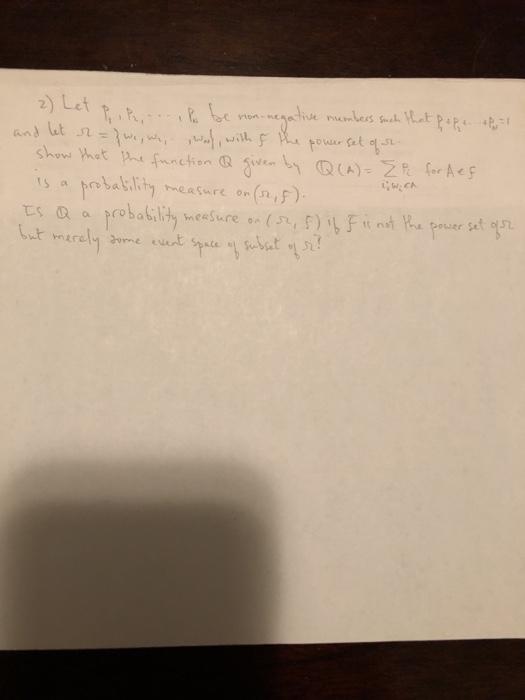 2) Let P₁, P₂, ..., Pₙ be non-negative numbers such that P₁+P₂+...+Pₙ=1
and let Ω = {w₁, w₂, .., wₙ}, with F the power set of Ω.
show that the function Q given by Q(A) = Σ Pᵢ for A∈F
i;wᵢ∈A
is a probability measure on (Ω, F).
Is Q a probability measure on (Ω, F) if F is not the power set of Ω
but merely some event space of subset of Ω?